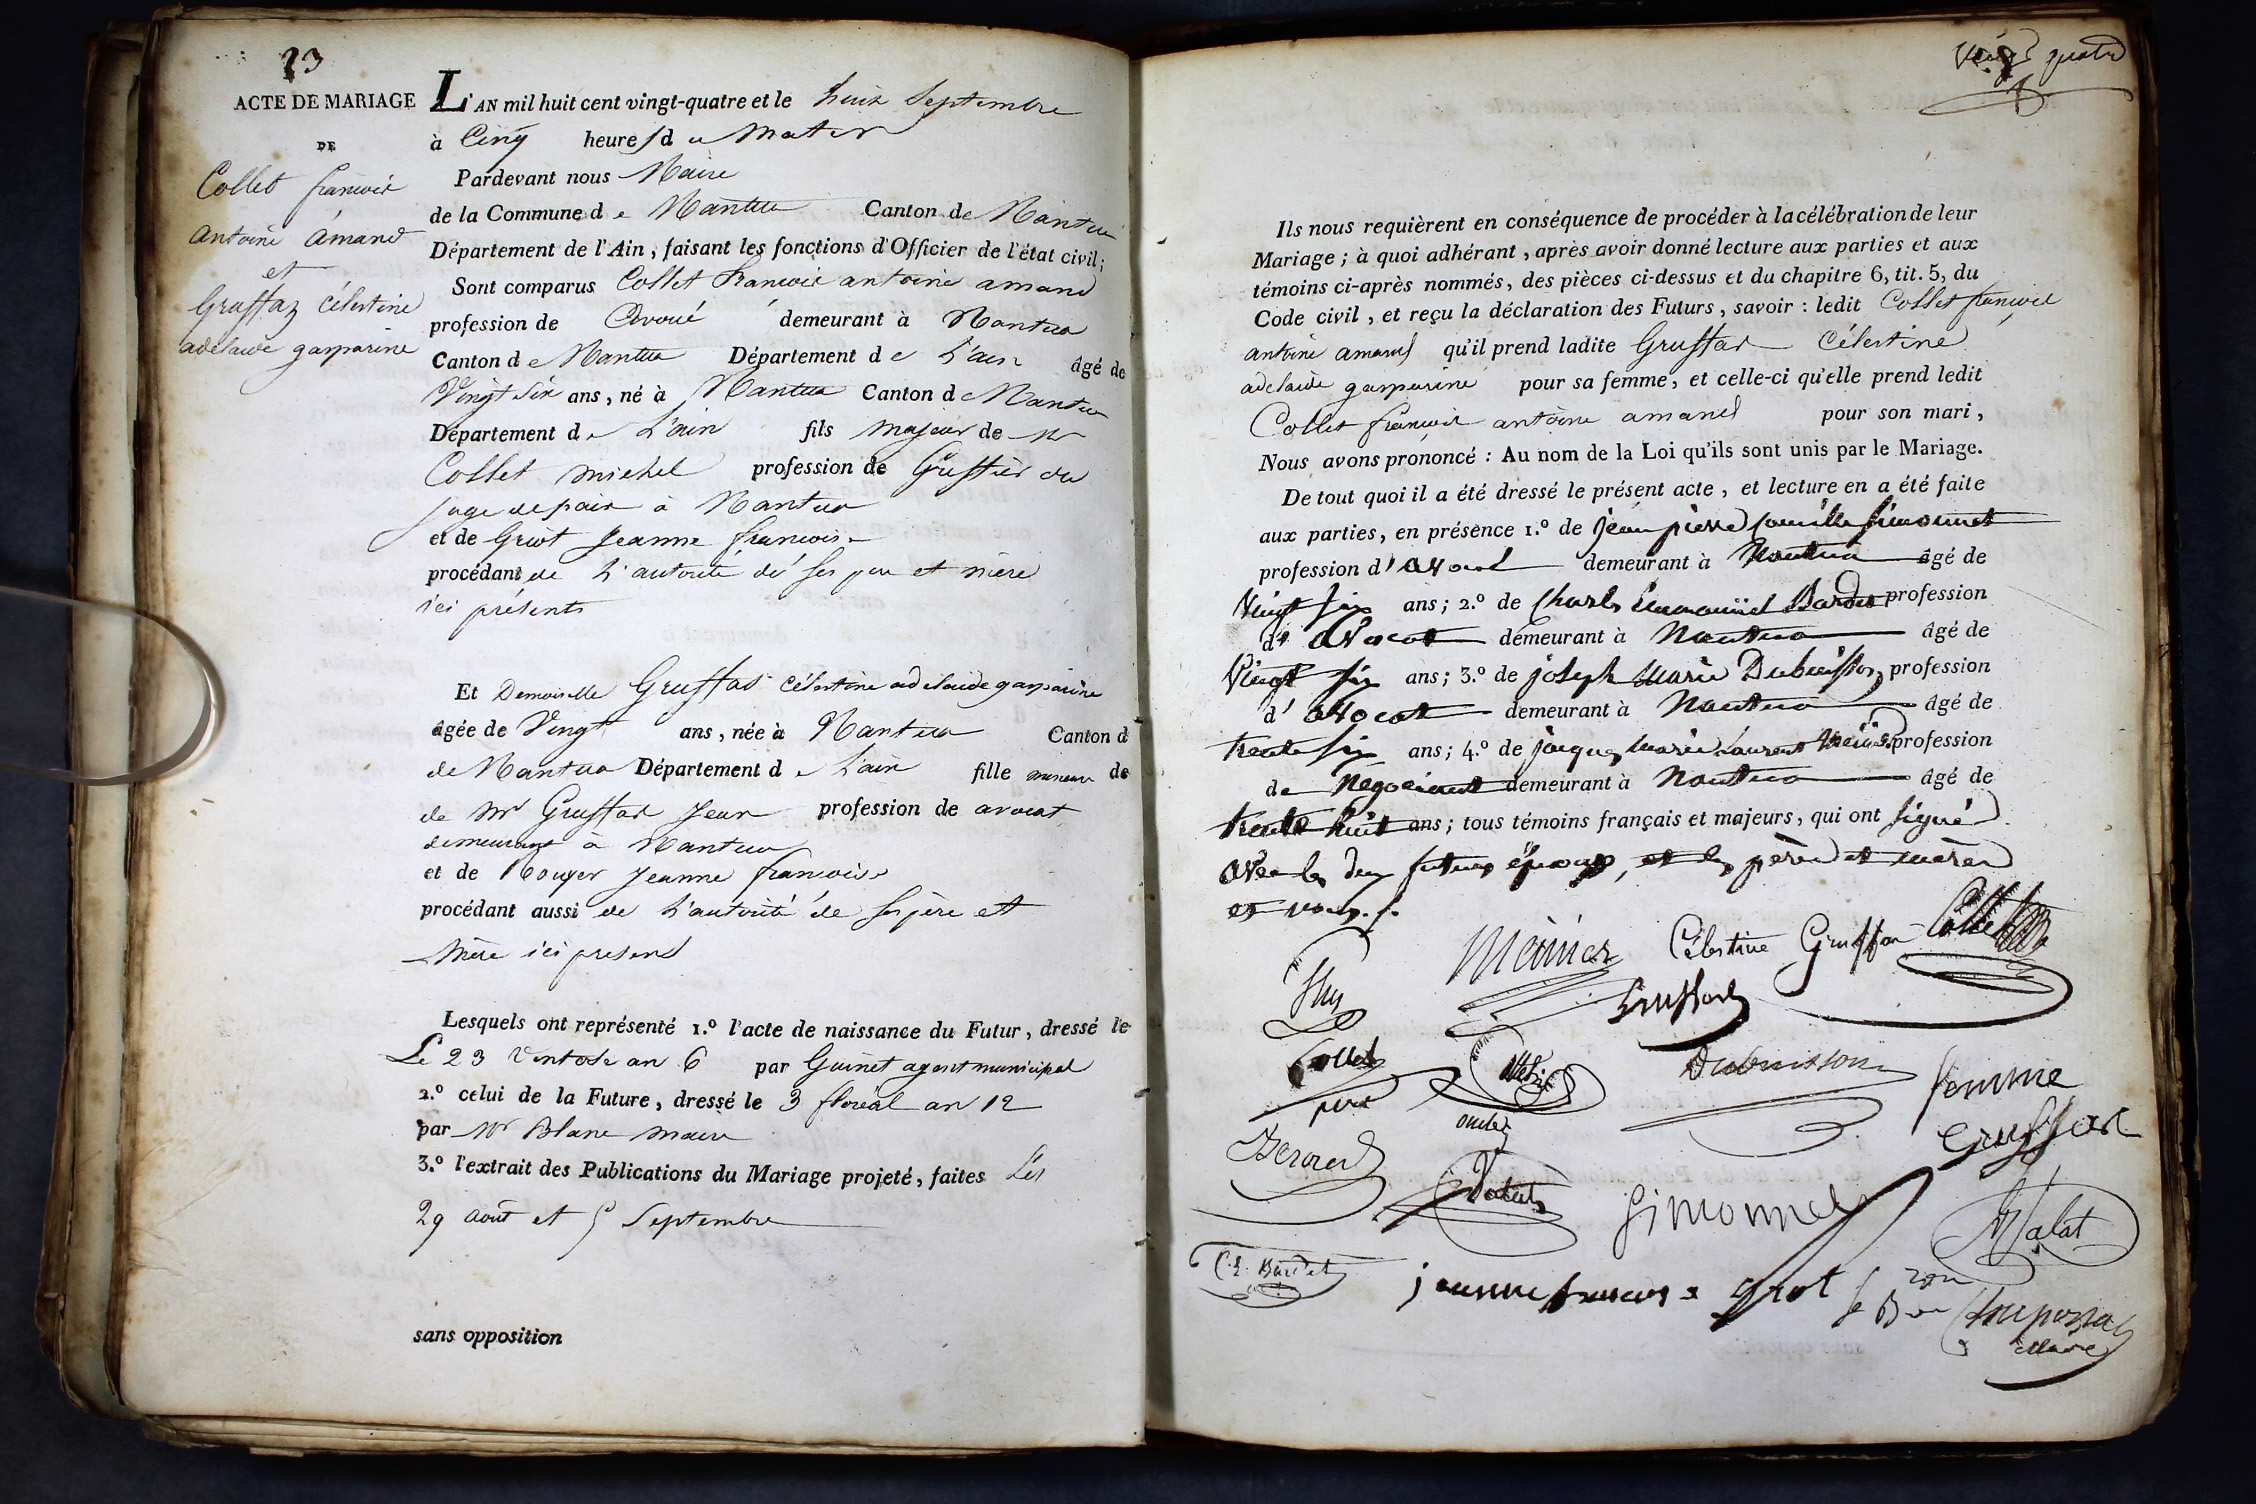 23
ACTE DE MARIAGE
DE
Collet françois
antoine amand
et
Gruffaz célestine
adelaide gasparine
L'AN mil huit cent vingt-quatre et le huit Septembre
à Cinq heures du Matin
Pardevant nous Maire
de la Commune de Nantua Canton de Nantua
Département de l'Ain, faisant les fonctions d'Officier de l'état civil;
Sont comparus Collet francois antoine amand
profession de Avoué demeurant à Nantua
Canton de Nantua Département de L'ain âgé de
Vingt six ans, né à Nantua Canton de Nantua
Département de L'ain fils majeur de Mr
Collet michel profession de Greffier du
juge de paix à Nantua
et de Griot Jeanne francoise
procédant de L'autorité de ses pere et mère
ici présents
Et Demoiselle Gruffaz célestine adelaide gasparine
âgée de Vingt ans, née à Nantua Canton d
de Nantua Département de L'ain fille mineure de
de Mr Gruffaz Jean profession de avocat
demeurant à Nantua
et de Rouyer Jeanne francoise
procédant aussi de L'autorité de ses père et
Mère ici present
Lesquels ont représenté 1.º l'acte de naissance du Futur, dressé le
Le 23 Ventose an 6 par Guinet agent municipal
2.º celui de la Future, dressé le 3 floréal an 12
par Mr Blanc maire
3.º l'extrait des Publications du Mariage projeté, faites Les
29 août et 5 Septembre
sans opposition
Vingt quatre
Ils nous requièrent en conséquence de procéder à la célébration de leur
Mariage; à quoi adhérant, après avoir donné lecture aux parties et aux
témoins ci-après nommés, des pièces ci-dessus et du chapitre 6, tit. 5, du
Code civil, et reçu la déclaration des Futurs, savoir: ledit Collet françois
antoine amand qu'il prend ladite Gruffaz Célestine
adelaide gasparine pour sa femme, et celle-ci qu'elle prend ledit
Collet françois antoine amand pour son mari,
Nous avons prononcé: Au nom de la Loi qu'ils sont unis par le Mariage.
De tout quoi il a été dressé le présent acte, et lecture en a été faite
aux parties, en présence 1.º de jean pierre camille Simonnet
profession d'avocat demeurant à Nantua âgé de
Vingt six ans; 2.º de Charles Emmanuel Bardet profession
d' avocat demeurant à Nantua âgé de
Vingt six ans; 3.º de joseph Marie Dubuisson profession
d' avocat demeurant à Nantua âgé de
trente six ans; 4.º de jacques Marie Laurent Meinier profession
de Negociant demeurant à Nantua âgé de
trente huit ans; tous témoins français et majeurs, qui ont signé
avec les deux futurs époux, et les pères et mères
et nous.
Meinier Célestine Gruffaz Collet
Gruffaz
Collet
père
Dubuisson
femme
Gruffaz
Simonnet
Malat
C. E. Bardet
jeanne francoise Griot
Maire